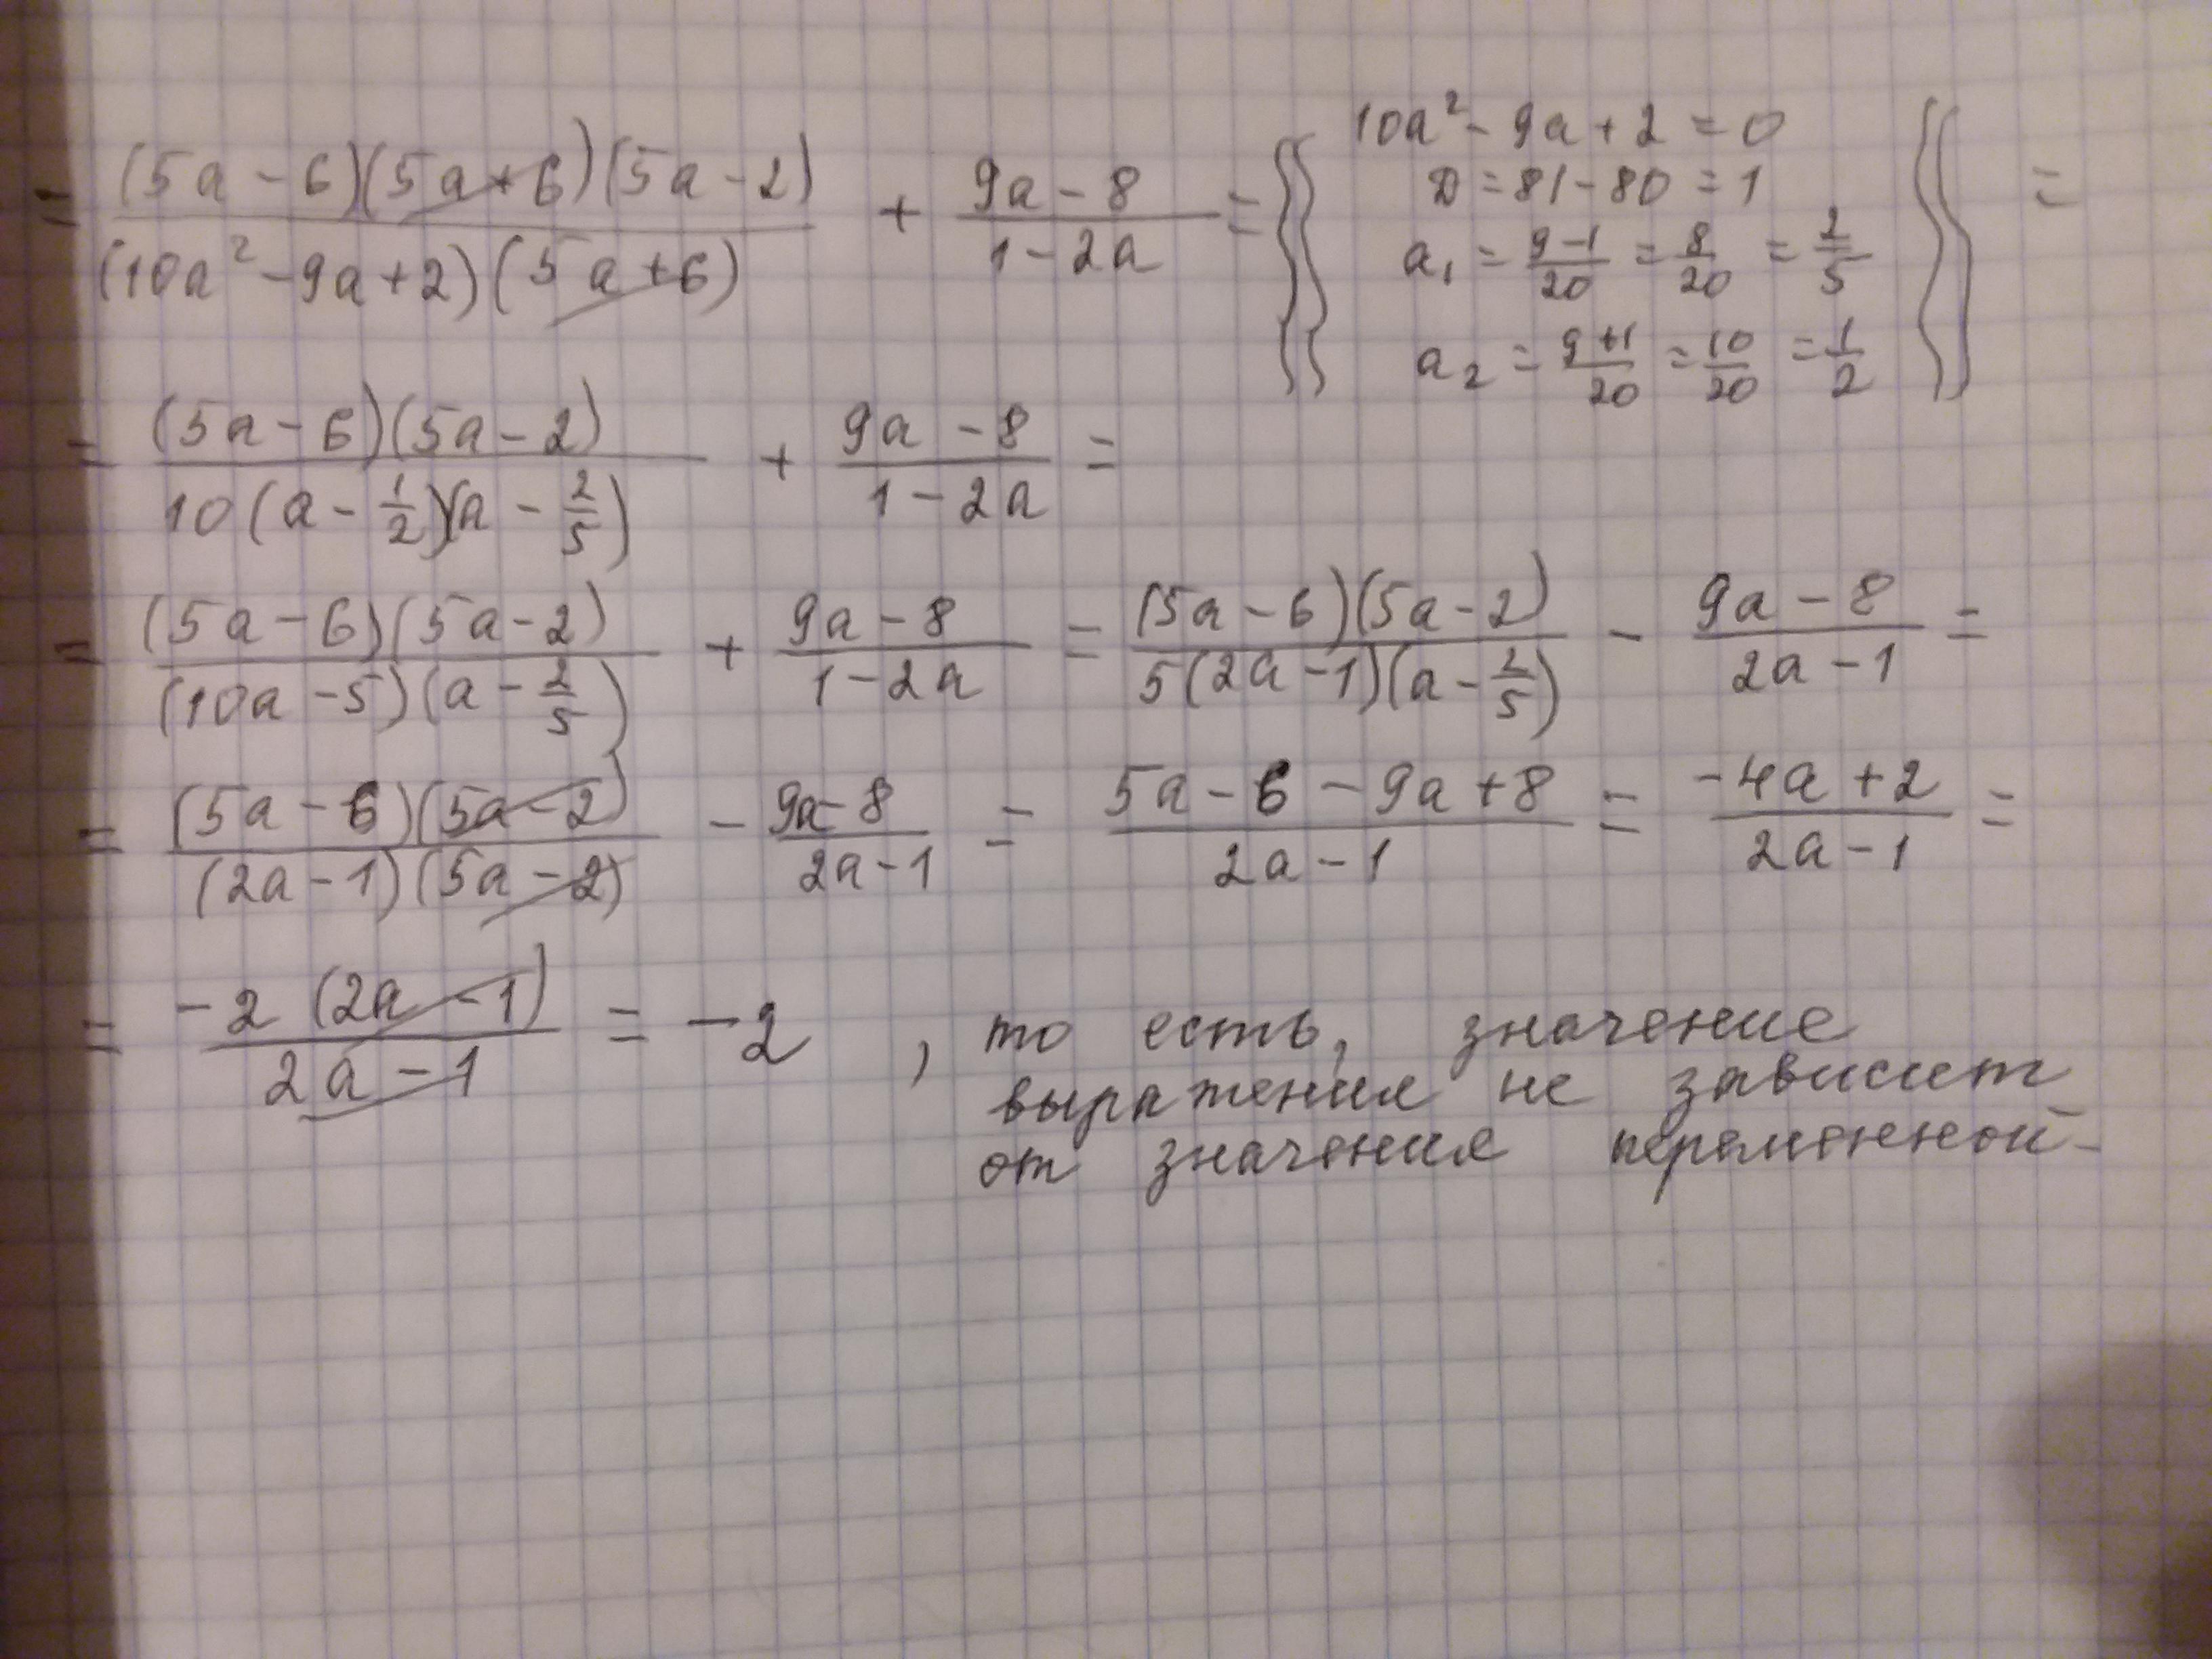 = (5a-6)(5a+6)(5a-2) / (10a²-9a+2)(5a+6) + 9a-8 / 1-2a = {{ 10a²-9a+2=0
D=81-80=1
a₁ = 9-1/20 = 8/20 = 2/5
a₂ = 9+1/20 = 10/20 = 1/2 }} =
= (5a-6)(5a-2) / 10(a-1/2)(a-2/5) + 9a-8 / 1-2a =
= (5a-6)(5a-2) / (10a-5)(a-2/5) + 9a-8 / 1-2a = (5a-6)(5a-2) / 5(2a-1)(a-2/5) - 9a-8 / 2a-1 =
= (5a-6)(5a-2) / (2a-1)(5a-2) - 9a-8 / 2a-1 = 5a-6-9a+8 / 2a-1 = -4a+2 / 2a-1 =
= -2(2a-1) / 2a-1 = -2 , то есть, значение
выражения не зависит
от значения переменной